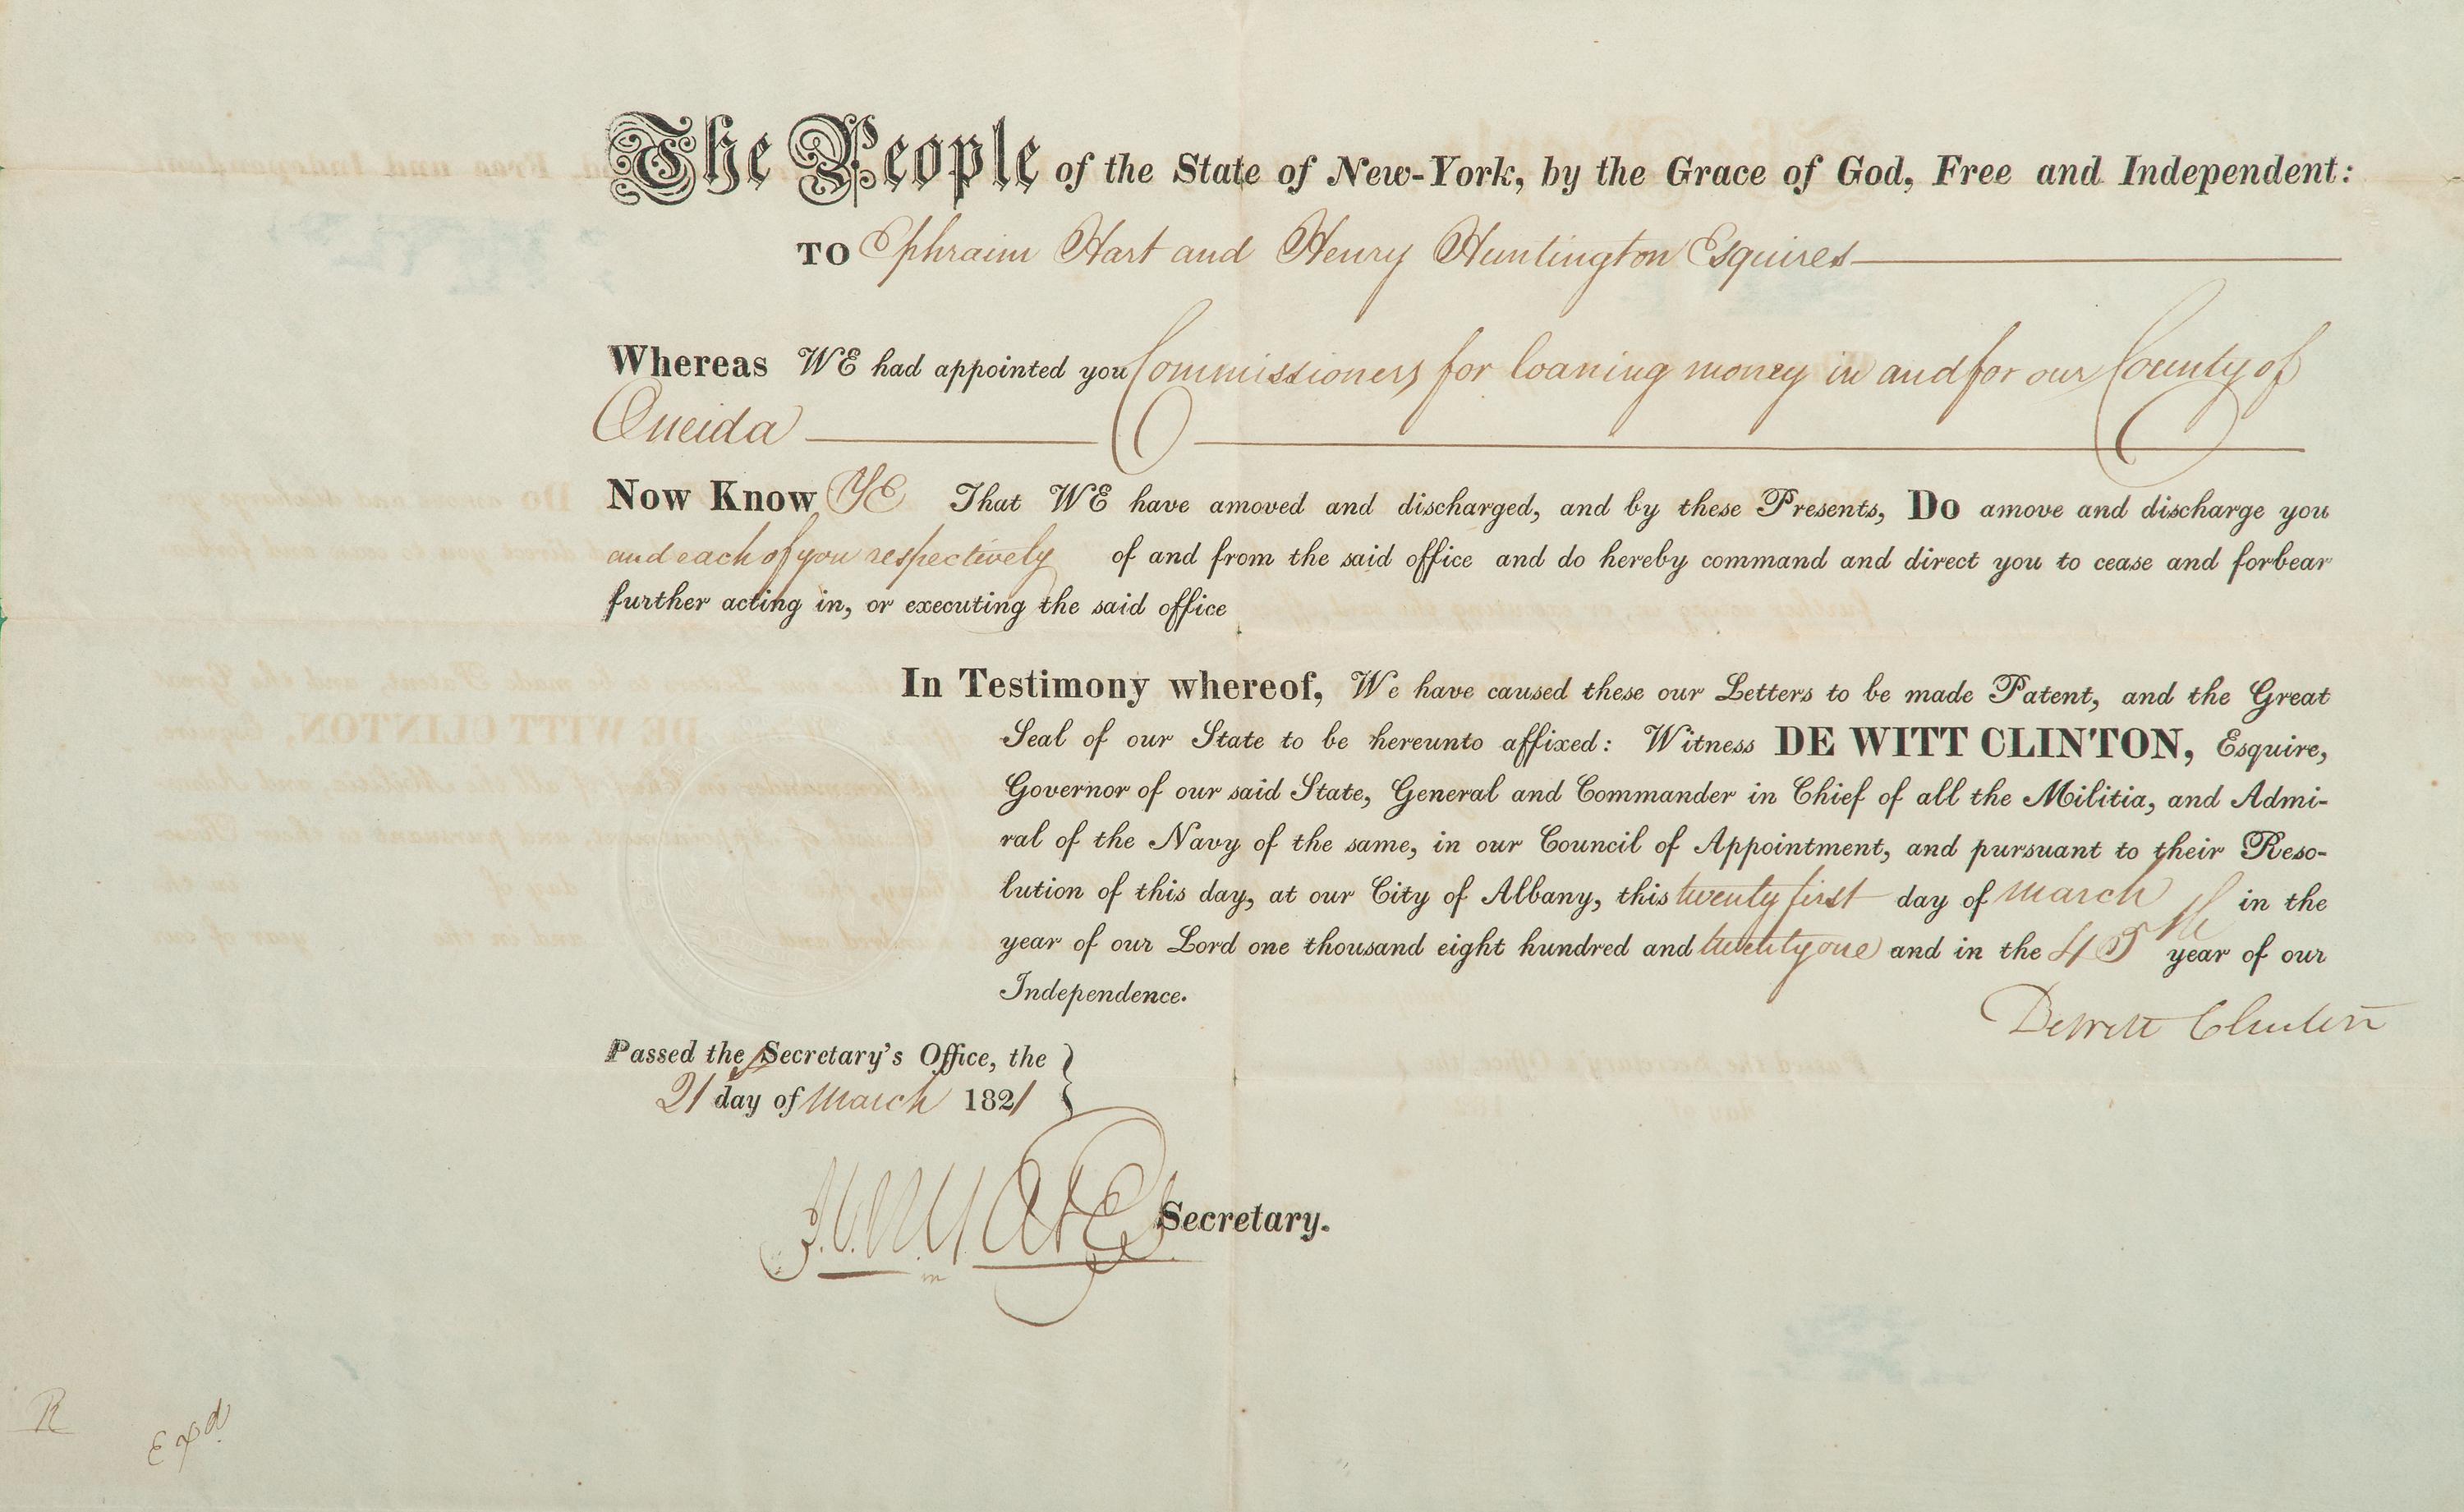 The People of the State of New-York, by the Grace of God, Free and Independent:
TO Ephraim Hart and Henry Huntington Esquires
Whereas WE had appointed you Commissioners for loaning money in and for our County of
Oneida
Now Know YE That WE have amoved and discharged, and by these Presents, Do amove and discharge you
and each of you respectively of and from the said office and do hereby command and direct you to cease and forbear
further acting in, or executing the said office
In Testimony whereof, We have caused these our Letters to be made Patent, and the Great
Seal of our State to be hereunto affixed: Witness DE WITT CLINTON, Esquire,
Governor of our said State, General and Commander in Chief of all the Militia, and Admi-
ral of the Navy of the same, in our Council of Appointment, and pursuant to their Reso-
lution of this day, at our City of Albany, this twenty first day of March in the
year of our Lord one thousand eight hundred and twenty one and in the 45th year of our
Independence.
Dewitt Clinton
Passed the Secretary's Office, the
21 day of March 1821
J.V.N. Yates Secretary.
R
Expd